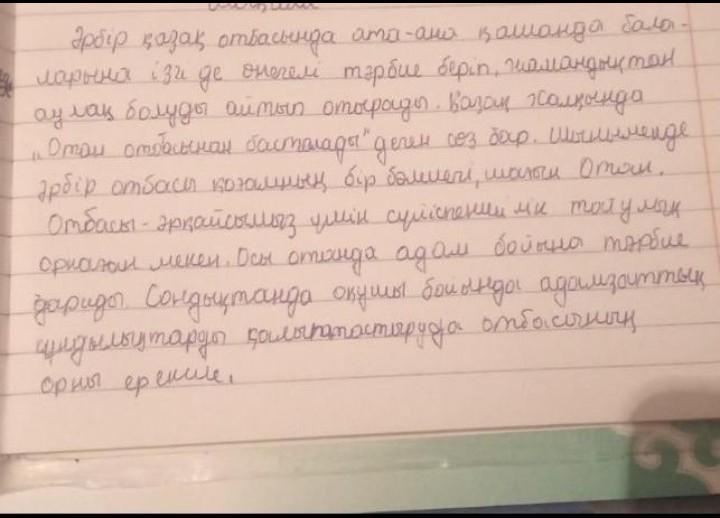 Әрбір қазақ отбасында ата-ана қашанда бала-
ларына ізгі де өнегелі тәрбие беріп, жамандықтан
аулақ болуды айтып отырады. Қазақ халқында
„Отан отбасынан басталады" деген сөз бар. Шынымende
әрбір отбасы қоғамның бір бөлшегі, шағын Отан.
Отбасы - әрқайсымыз үшін сүйіспеншілік пен
орнаған мекен. Осы отанда адам бойына тәрбие
дариды. Сондықтанда оқушы бойында адамзаттық
құндылықтарды қалыптастыруда отбасының
орны ерекше.